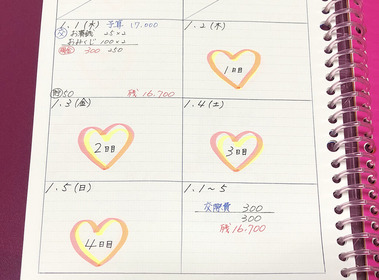 1.1(水) 予算 17,000
交 お賽銭 25×2
おみくじ 100×2
現金 300 250
50 残 16,700
1.2(木)
1日目
1.3(金)
2日目
1.4(土)
3日目
1.5(日)
4日目
1.1~5
交際費 300
300
残16,700